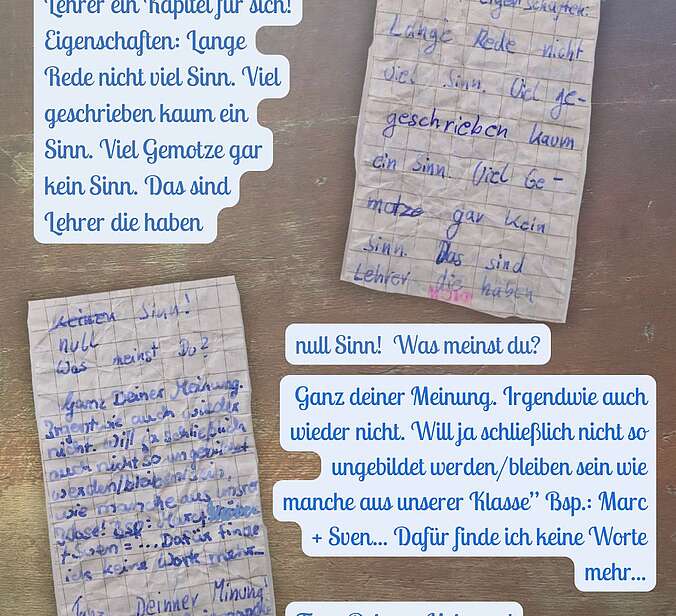 Lehrer ein Kapitel für sich!
Eigenschaften: Lange
Rede nicht viel Sinn. Viel
geschrieben kaum ein
Sinn. Viel Gemotze gar
kein Sinn. Das sind
Lehrer die haben
Eigenschaften:
Lange Rede nicht
viel Sinn. Viel ge-
geschrieben kaum
ein Sinn. Viel Ge-
motze gar kein
Sinn. Das sind
Lehrer die haben
keinen Sinn!
null
Was meinst Du?
Ganz Deiner Meinung.
Irgentwie auch wieder
nicht. Will ja schließlich
auch nicht so ungebildet
werden/bleiben sein,
wie manche aus unsrer
Klasse! Bsp: Marc
+ Sven = ... Dafür finde
ich keine Worte mehr...
Deinner Minung!
null Sinn! Was meinst du?
Ganz deiner Meinung. Irgendwie auch
wieder nicht. Will ja schließlich nicht so
ungebildet werden/bleiben sein wie
manche aus unserer Klasse” Bsp.: Marc
+ Sven... Dafür finde ich keine Worte
mehr...